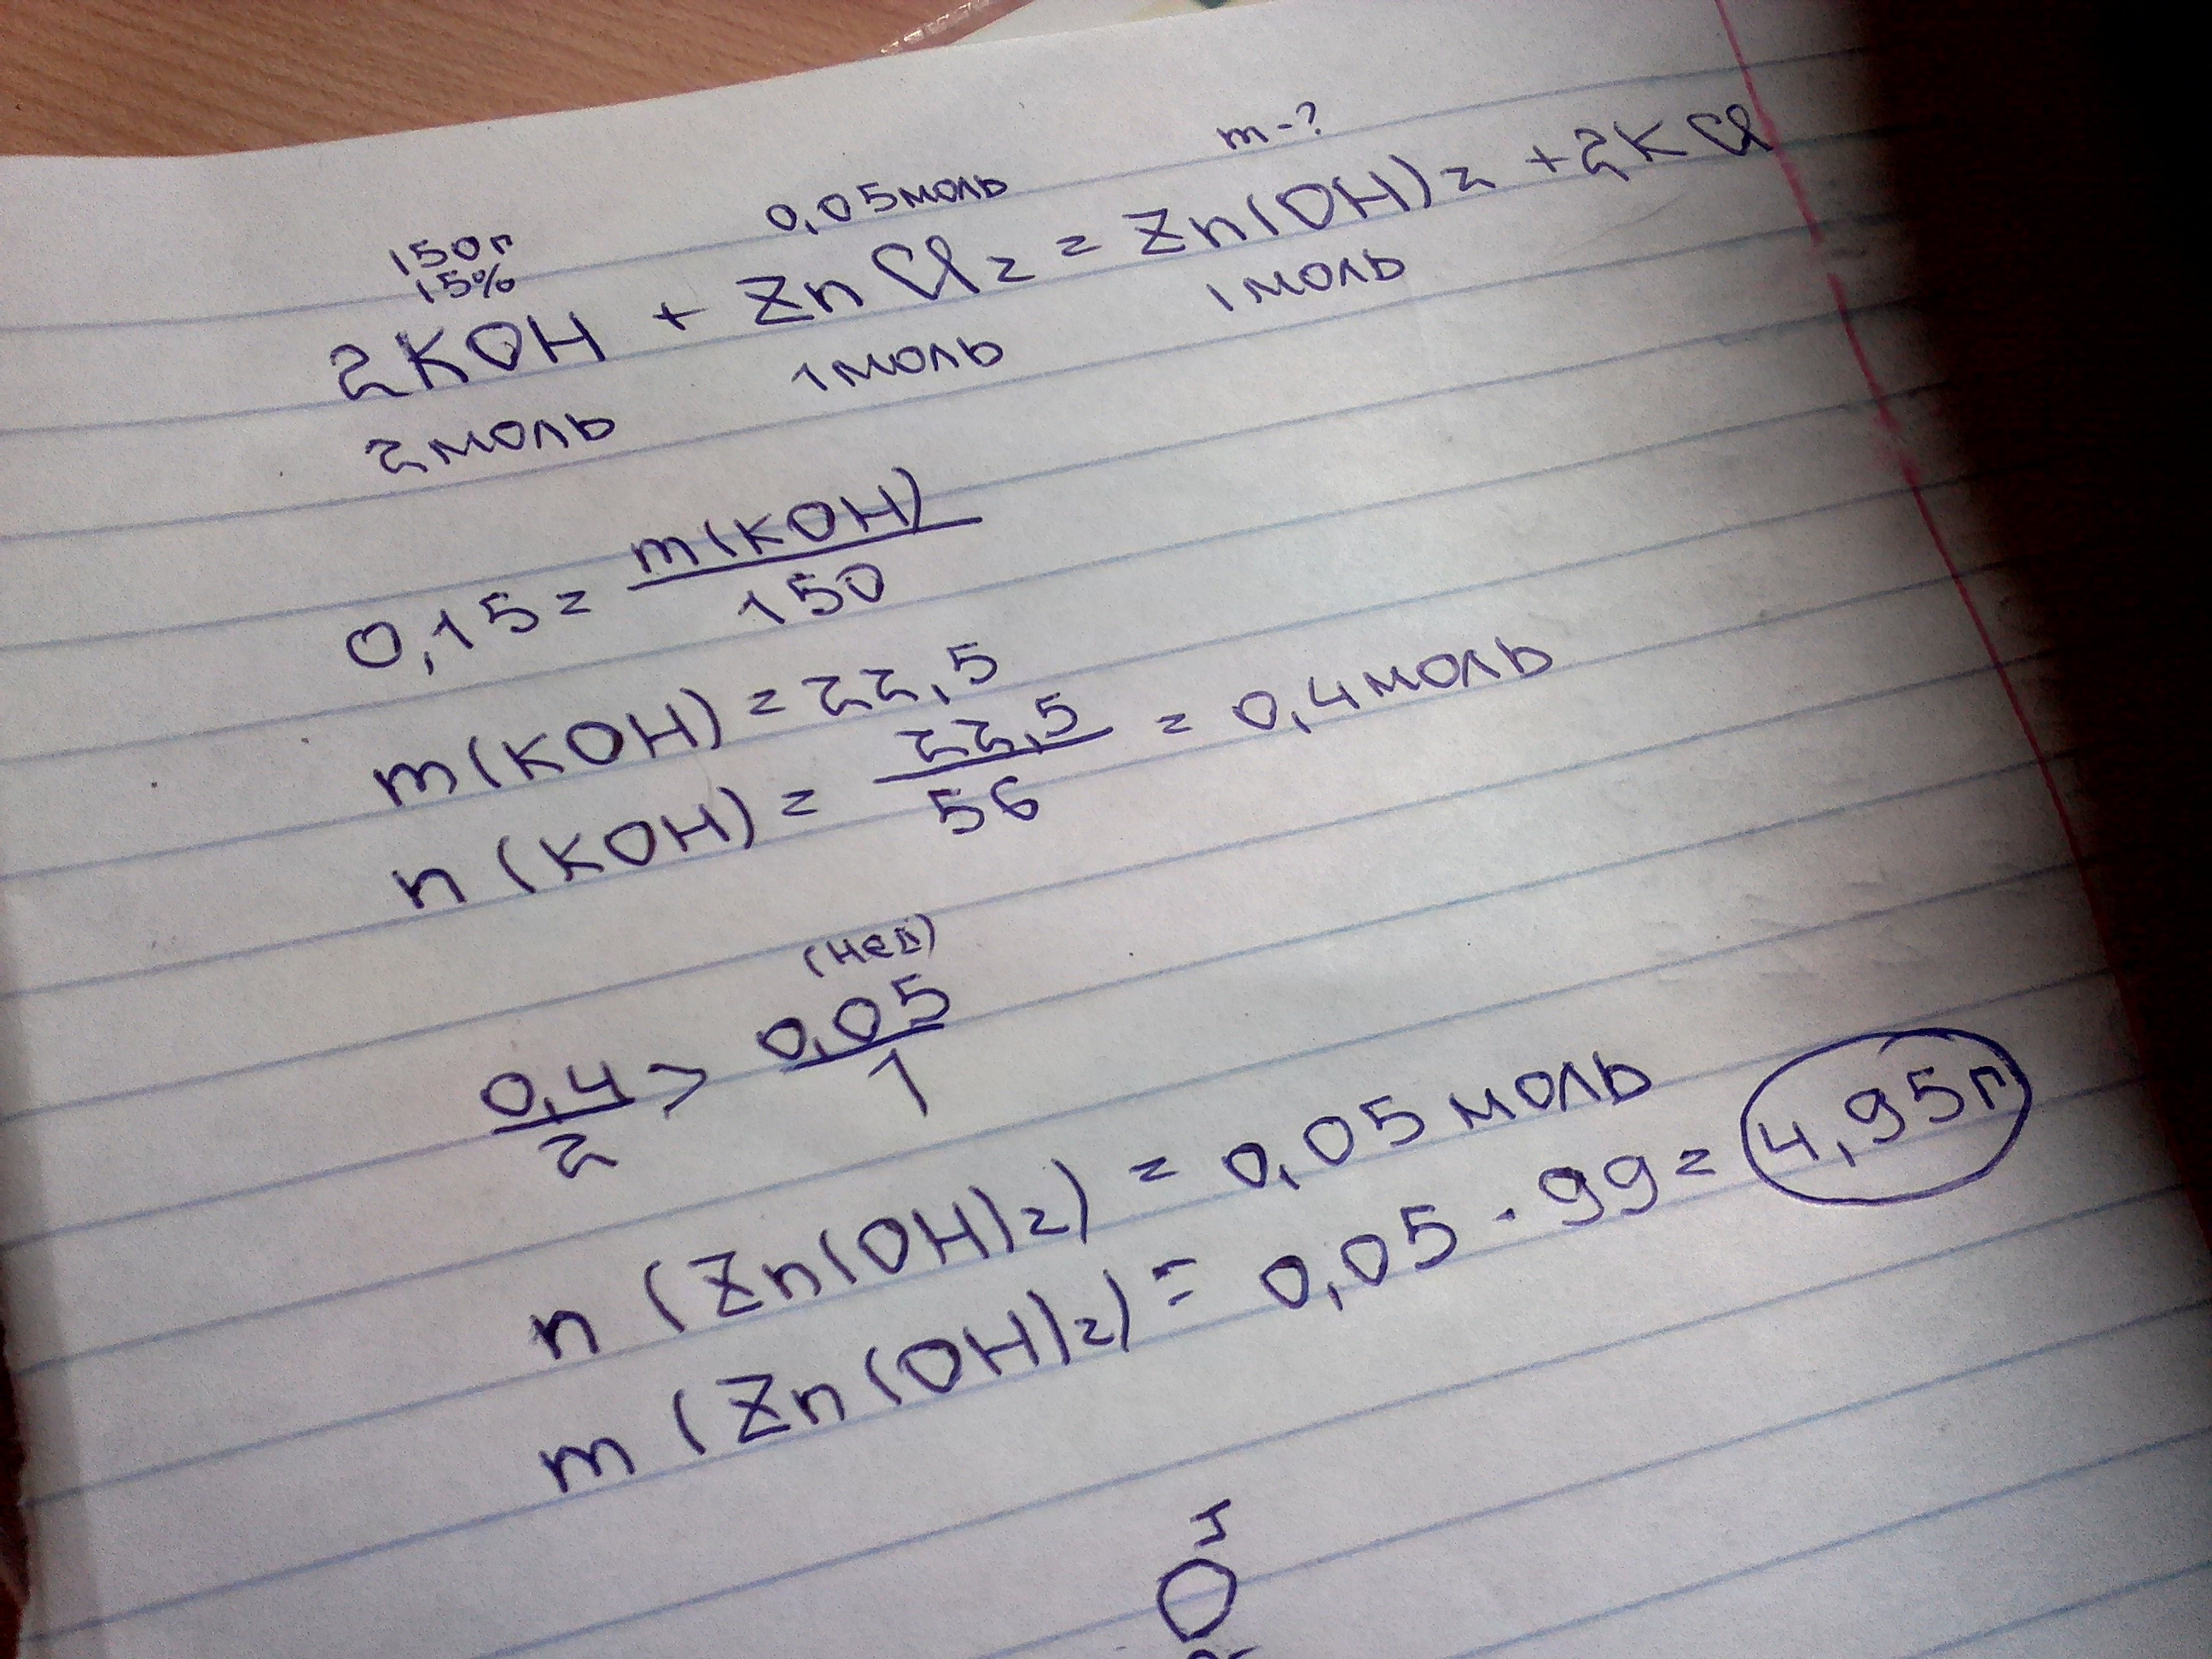 m-?
150г 0,05моль
15%
2KOH + ZnCl2 = Zn(OH)2 + 2KCl
2моль 1моль 1моль
0,15 = m(KOH)/150
m(KOH) = 22,5
n(KOH) = 22,5/56 = 0,4моль
(нед)
0,4/2 > 0,05/1
n(Zn(OH)2) = 0,05 моль
m(Zn(OH)2) = 0,05 · 99 = 4,95г